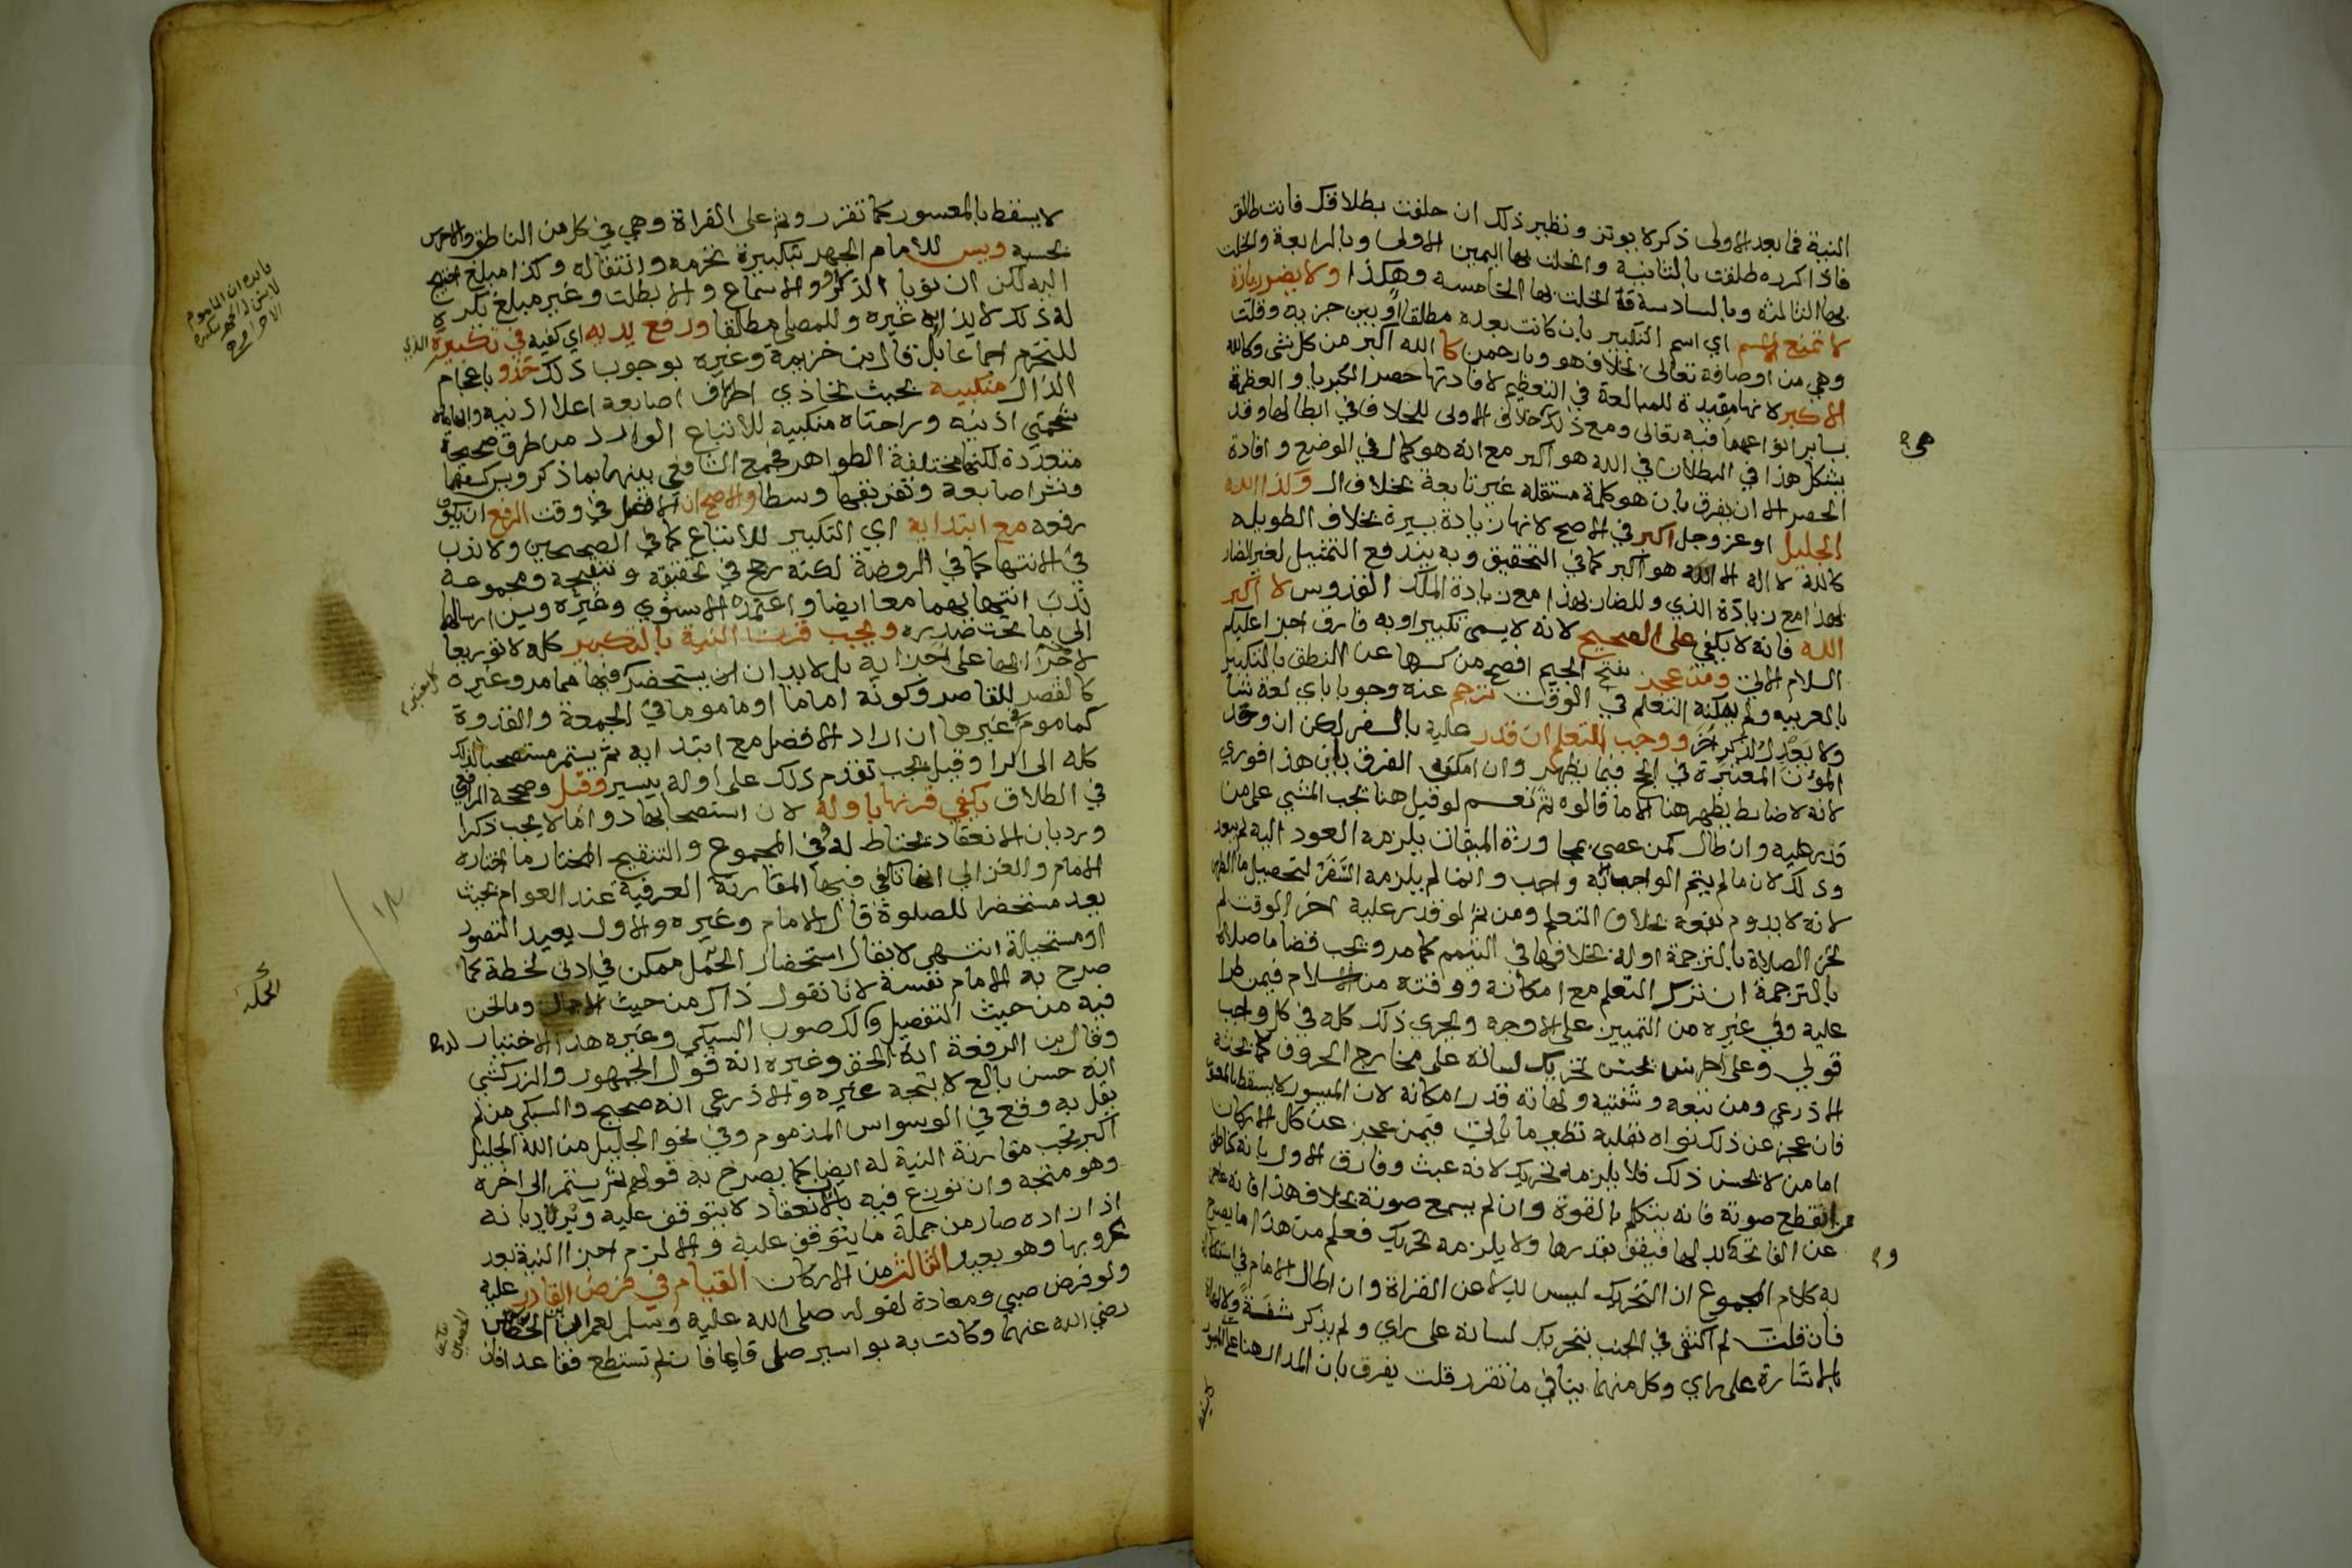 النية فما بعد الاولى ذكر لا يوثر ونظير ذلك ان حلفت بطلاقك فانت طالق
فاذا كرره طلقت بالثانية وانحلت بها اليمين الاولى وبالرابعة وانحلت
بها الثالثة وبالسادسة وانحلت بها الخامسه وهكذا ولا يضر زيادة
لا تمنع الاسم اي اسم التكبير بان كانت بعده مطلقا او بين جزيه وقلت
وهي من اوصافه تعالى بخلاف هو ويا رحمن كا الله اكبر من كل شي وكالله
الاكبر لانها مفيدة للمبالغة في التعظيم لافادتها حصر الكبريا والعظمة
بساير انواعهما فيه تعالى ومع ذلك خلاف الاولى للخلاف في ابطالها وقد
يشكل هذا في البطلان في الله هو اكبر مع انه هو كمال في الوضع وافادة
الحصر الا ان يفرق بان هو كلمة مستقلة غير تابعة بخلاف الـ وكذا الله
الجليل او عز وجل اكبر في الاصح لانها زيادة يسيرة بخلاف الطويله
كالله لا اله الا الله هو اكبر كما في التحقيق وبه يندفع التمثيل لغير الضار
بهذا مع زيادة الذي وللضار بهذا مع زيادة الملك القدوس لا اكبر
الله فانه لا يكفي على الصحيح لانه لا يسمى تكبيرا وبه فارق اجزا عليكم
السلام الاتي ومن عجز بفتح الجيم افصح من كسرها عن النطق بالتكبير
بالعربيه ولم يمكنه التعلم في الوقت ترجم عنه وجوبا باي لغة شا
ولا يعدل لذكر اخر ووجب التعلم ان قدر عليه بالسفر لكن ان وجد
المؤن المعتبرة في الحج فيما يظهر وان امكن الفرق بان هذا فوري
لانه لا ضابط يظهر هنا الا ما قالوه ثم نعم لو قيل هنا يجب المشي على من
قدر عليه وان طال كمن عصى بمجاوزة الميقات يلزمه العود اليه لم يبعد
وذلك لان ما لم يتم الواجب الا به واجب وانما لم يلزمه السفر لتحصيل ما الطهر
لانه لا يدوم نفعه بخلاف التعلم ومن ثم لو قدر عليه اخر الوقت لم
تجز الصلاة بالترجمة اوله بخلافها في التيمم كما مر ويجب قضا ما صلاه
بالترجمة ان ترك التعلم مع امكانه ووقته من الاسلام فيمن طرا
عليه وفي غيره من التمييز على الاوجه ويجري ذلك كله في كل واجب
قولي وعلى اخرس يحسن تحريك لسانه على مخارج الحروف كما بحثه
الاذرعي ومن تبعه وشفتيه ولهاته قدر امكانه لان الميسور لا يسقط بالمعسور
فان عجز عن ذلك نواه بقلبه نظير ما ياتي فيمن عجز عن كل الاركان
اما من لا يحسن ذلك فلا يلزمه تحريك لانه عبث وفارق الاول بانه كناطق
انقطع صوته فانه يتكلم بالقوة وان لم يسمع صوته بخلاف هذا فانه عاجز
عن الفاتحة وبدلها فيقف بقدرها ولا يلزمه تحريك فعلم من هذا ما يصرح
به كلام المجموع ان التحريك ليس بدلا عن القراة وان اطال الامام في استشكاله
فان قلت لم اكتفى في الجنب بتحريك لسانه على راي ولم يذكر شفة ولا لهاة
بالاشارة على راي وكل منهما ينافي ما تقرر قلت يفرق بان المدار هنا على الميسور
هي
وم
لا يسقط بالمعسور كما تقرر وثم على القراة وهي في كل من الناطق والاخرس
بحسبه ويسن للامام الجهر بتكبيرة تحرمه وانتقاله وكذا مبلغ احتيج
اليه لكن ان نويا الذكر او والاسماع والا بطلت وغير مبلغ يكره
له ذلك لايذايه غيره وللمصلي مطلقا ورفع يديه اي كفيه في تكبيرة
للتحرم اجماعا بل قال ابن خزيمة وغيره بوجوب ذلك حذو باعجام
الذال منكبيه بحيث تحاذي اطراف اصابعه اعلا اذنيه وابهاماه
شحمتي اذنيه وراحتاه منكبيه للاتباع الوارد من طرق صحيحة
متعددة لكنها مختلفة الظواهر فجمع الشافعي بينهما بما ذكر ويسن كشفهما
ونشر اصابعه وتفريقها وسطا والاصح ان الافضل في وقت الرفع ان يكون
رفعه مع ابتدايه اي التكبير للاتباع كما في الصحيحين ولا ندب
في الانتها كما في الروضة لكنه رجح في تحقيقه وتنقيحه ومجموعه
ندب انتهايهما معا ايضا واعتمده الاسنوي وغيره ويسن ارسالهما
الى ما تحت صدره ويجب قرن النية بالتكبير كله لا توزيعا
لاجزايها على اجزايه بل لا بد ان يستحضر فيها مما مر وغيره
كالقصر للقاصر وكونه اماما او ماموما في الجمعة والقدوة
كماموم في غيرها ان اراد الافضل مع ابتدايه ثم يستمر مستصحبا لذلك
كله الى الرا وقيل يجب تقدم ذلك على اوله بيسير وقيل وصححه الرافعي
في الطلاق يكفي قرنها باوله لان استصحابها دواما لا يجب ذكرا
ورد بان الانعقاد يحتاط له وفي المجموع والتنقيح المختار ما اختاره
الامام والغزالي انها تكفي فيها المقارنة العرفية عند العوام بحيث
يعد مستحضرا للصلوة قال الامام وغيره والاول بعيد التصور
او مستحيلة انتهى لا يقال استحضار الجمل ممكن في ادنى لحظة كما
صرح به الامام نفسه لانا نقول ذاك من حيث الاجمال وما نحن
فيه من حيث التفصيل ولذلك صوب السبكي وغيره هذا الاختيار
وقال ابن الرفعة انه الحق وغيره انه قول الجمهور والزركشي
انه حسن بالغ لا يتجه غيره والاذرعي انه صحيح والسبكي من لم
يقل به وقع في الوسواس المذموم وفي نحو الجليل من الله الجليل
اكبر تجب مقارنة النية له ايضا كما يصرح به قولهم ثم يستمر الى اخره
وهو متجه وان نوزع فيه بان الانعقاد لا يتوقف عليه ويرد بانه
اذا زاده صار من جملة ما يتوقف عليه والا لزم اجزا النية بعد
عزوبها وهو بعيد الثالث من الاركان القيام في فرض القادر عليه
ولو فرض صبي ومعادة لقوله صلى الله عليه وسلم لعمران بن الحصين
رضي الله عنهما وكانت به بواسير صلى قايما فان لم تستطع فقاعدا فان
فايده ان الماموم
لا يسن له الجهر بتكبيرة
الاحرام
الجملة
١٨